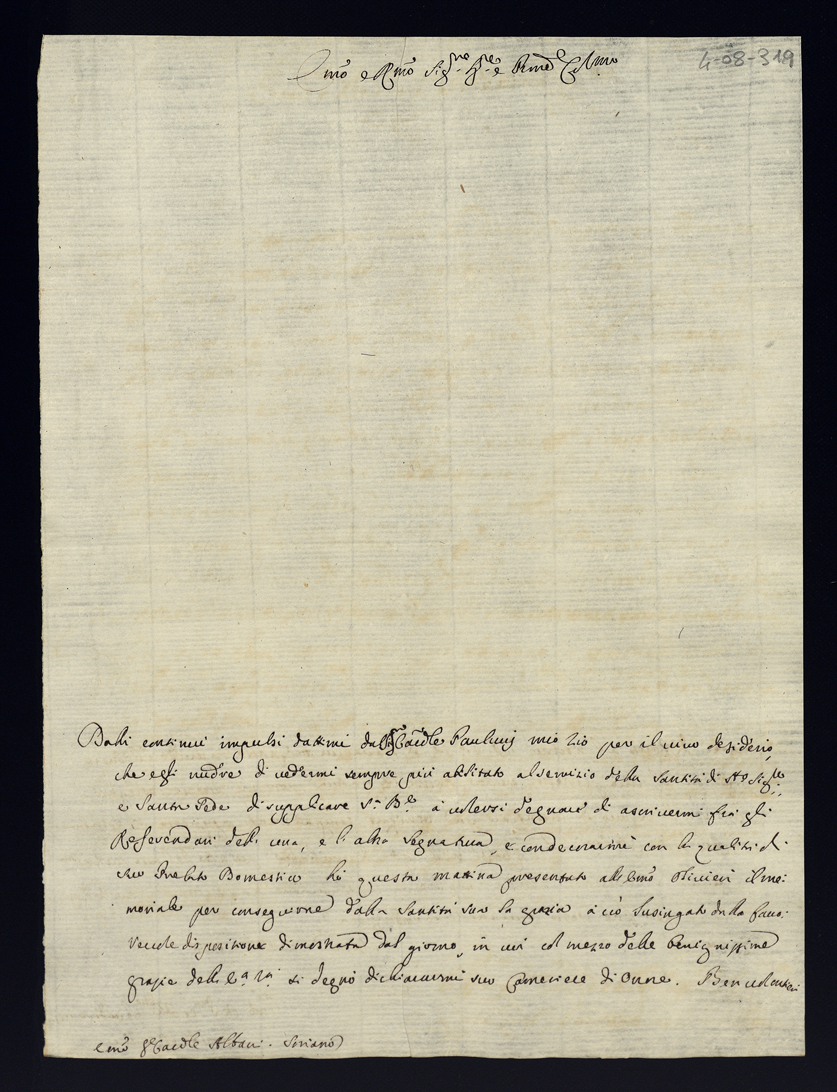 Emo e Rmo Sigre Pne e Prone Colmo
4-08-319
Dalli continui impulsi dattimi dal Sr Cardle Paulucij mio Zio per il vivo desiderio,
che egli nudre di vedermi sempre più abilitato al servizio della Santità di No Sigre,
e Santa Sede di supplicare Sa Be à volersi degnare di ascrivermi frà gli
Referendari dell' una, e l' altra Segnatura, e condecorarmi con la qualità di
suo Prelato Domestico hò questa mattina presentato all' Emo Olivieri il me:
moriale per conseguirne dalla Santità sua la grazia à ciò lusingato dalla favo:
revole disposizione dimostrata dal giorno, in cui col mezzo delle benignissime
grazie dell' Ea Va si degnò dichiararmi suo Cameriere di Onore. Ben volentieri
Emo Sr Cardle Albani. Soriano